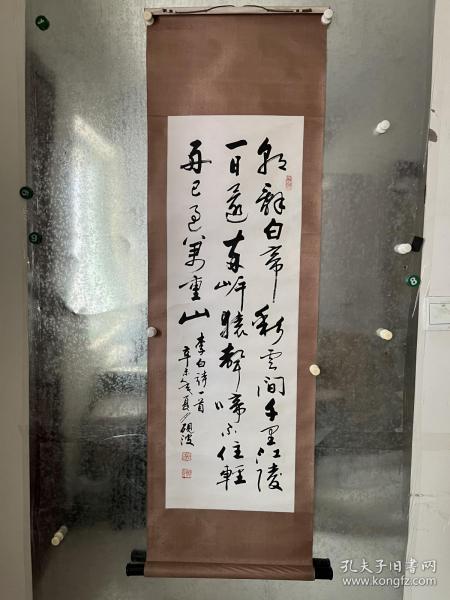 朝辭白帝彩雲間千里江陵
一日還兩岸猿聲啼不住輕
舟已過萬重山
李白詩一首
辛未年夏
8
孔夫子旧书网
www.kongfz.com